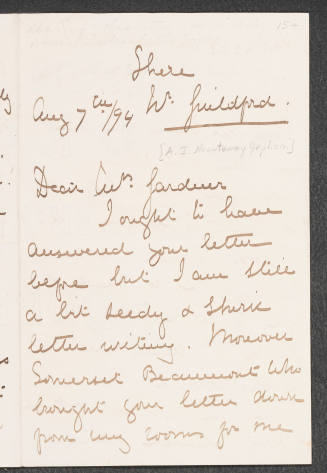 154
Shere
Aug 7th/94 Nr. Guildford.
Dear Mrs. Gardner
I ought to have
answered your letter
before but I am still
a bit seedy & shirk
letter writing. Moreover
Somerset Beaumont who
brought your letter down
from my rooms for me